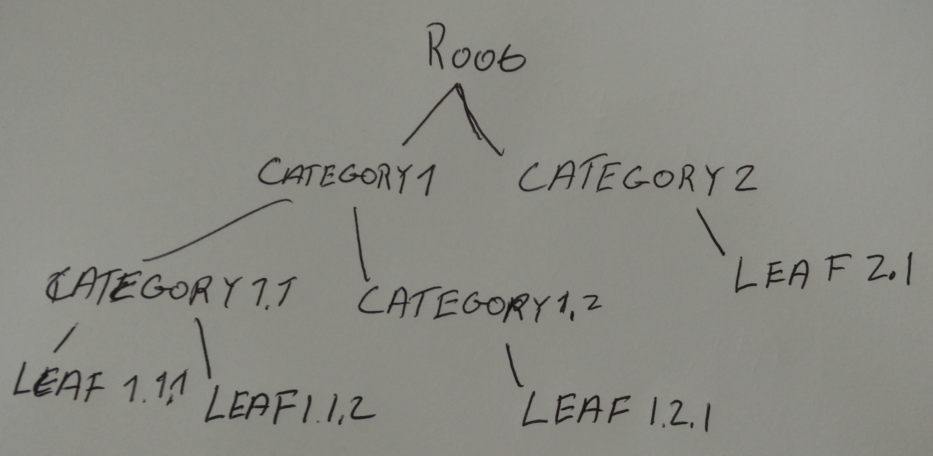 Root
CATEGORY 1
CATEGORY 2
CATEGORY 1.1
CATEGORY 1.2
LEAF 2.1
LEAF 1.1.1
LEAF 1.1.2
LEAF 1.2.1